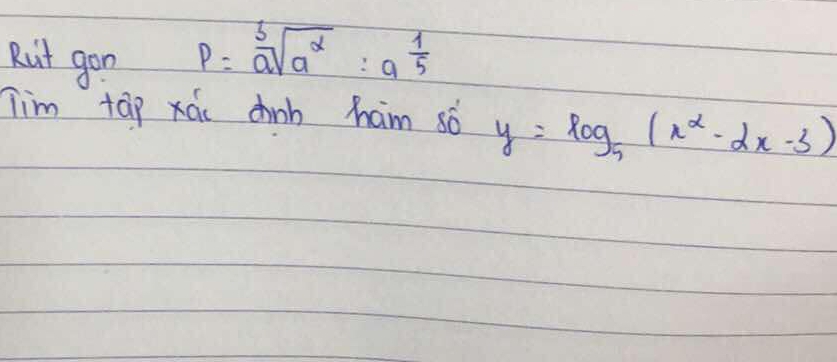 Rút gọn P = a∛(a²) : a^(1/5)
Tìm tập xác định hàm số y = log₅ (x² - 2x - 3)